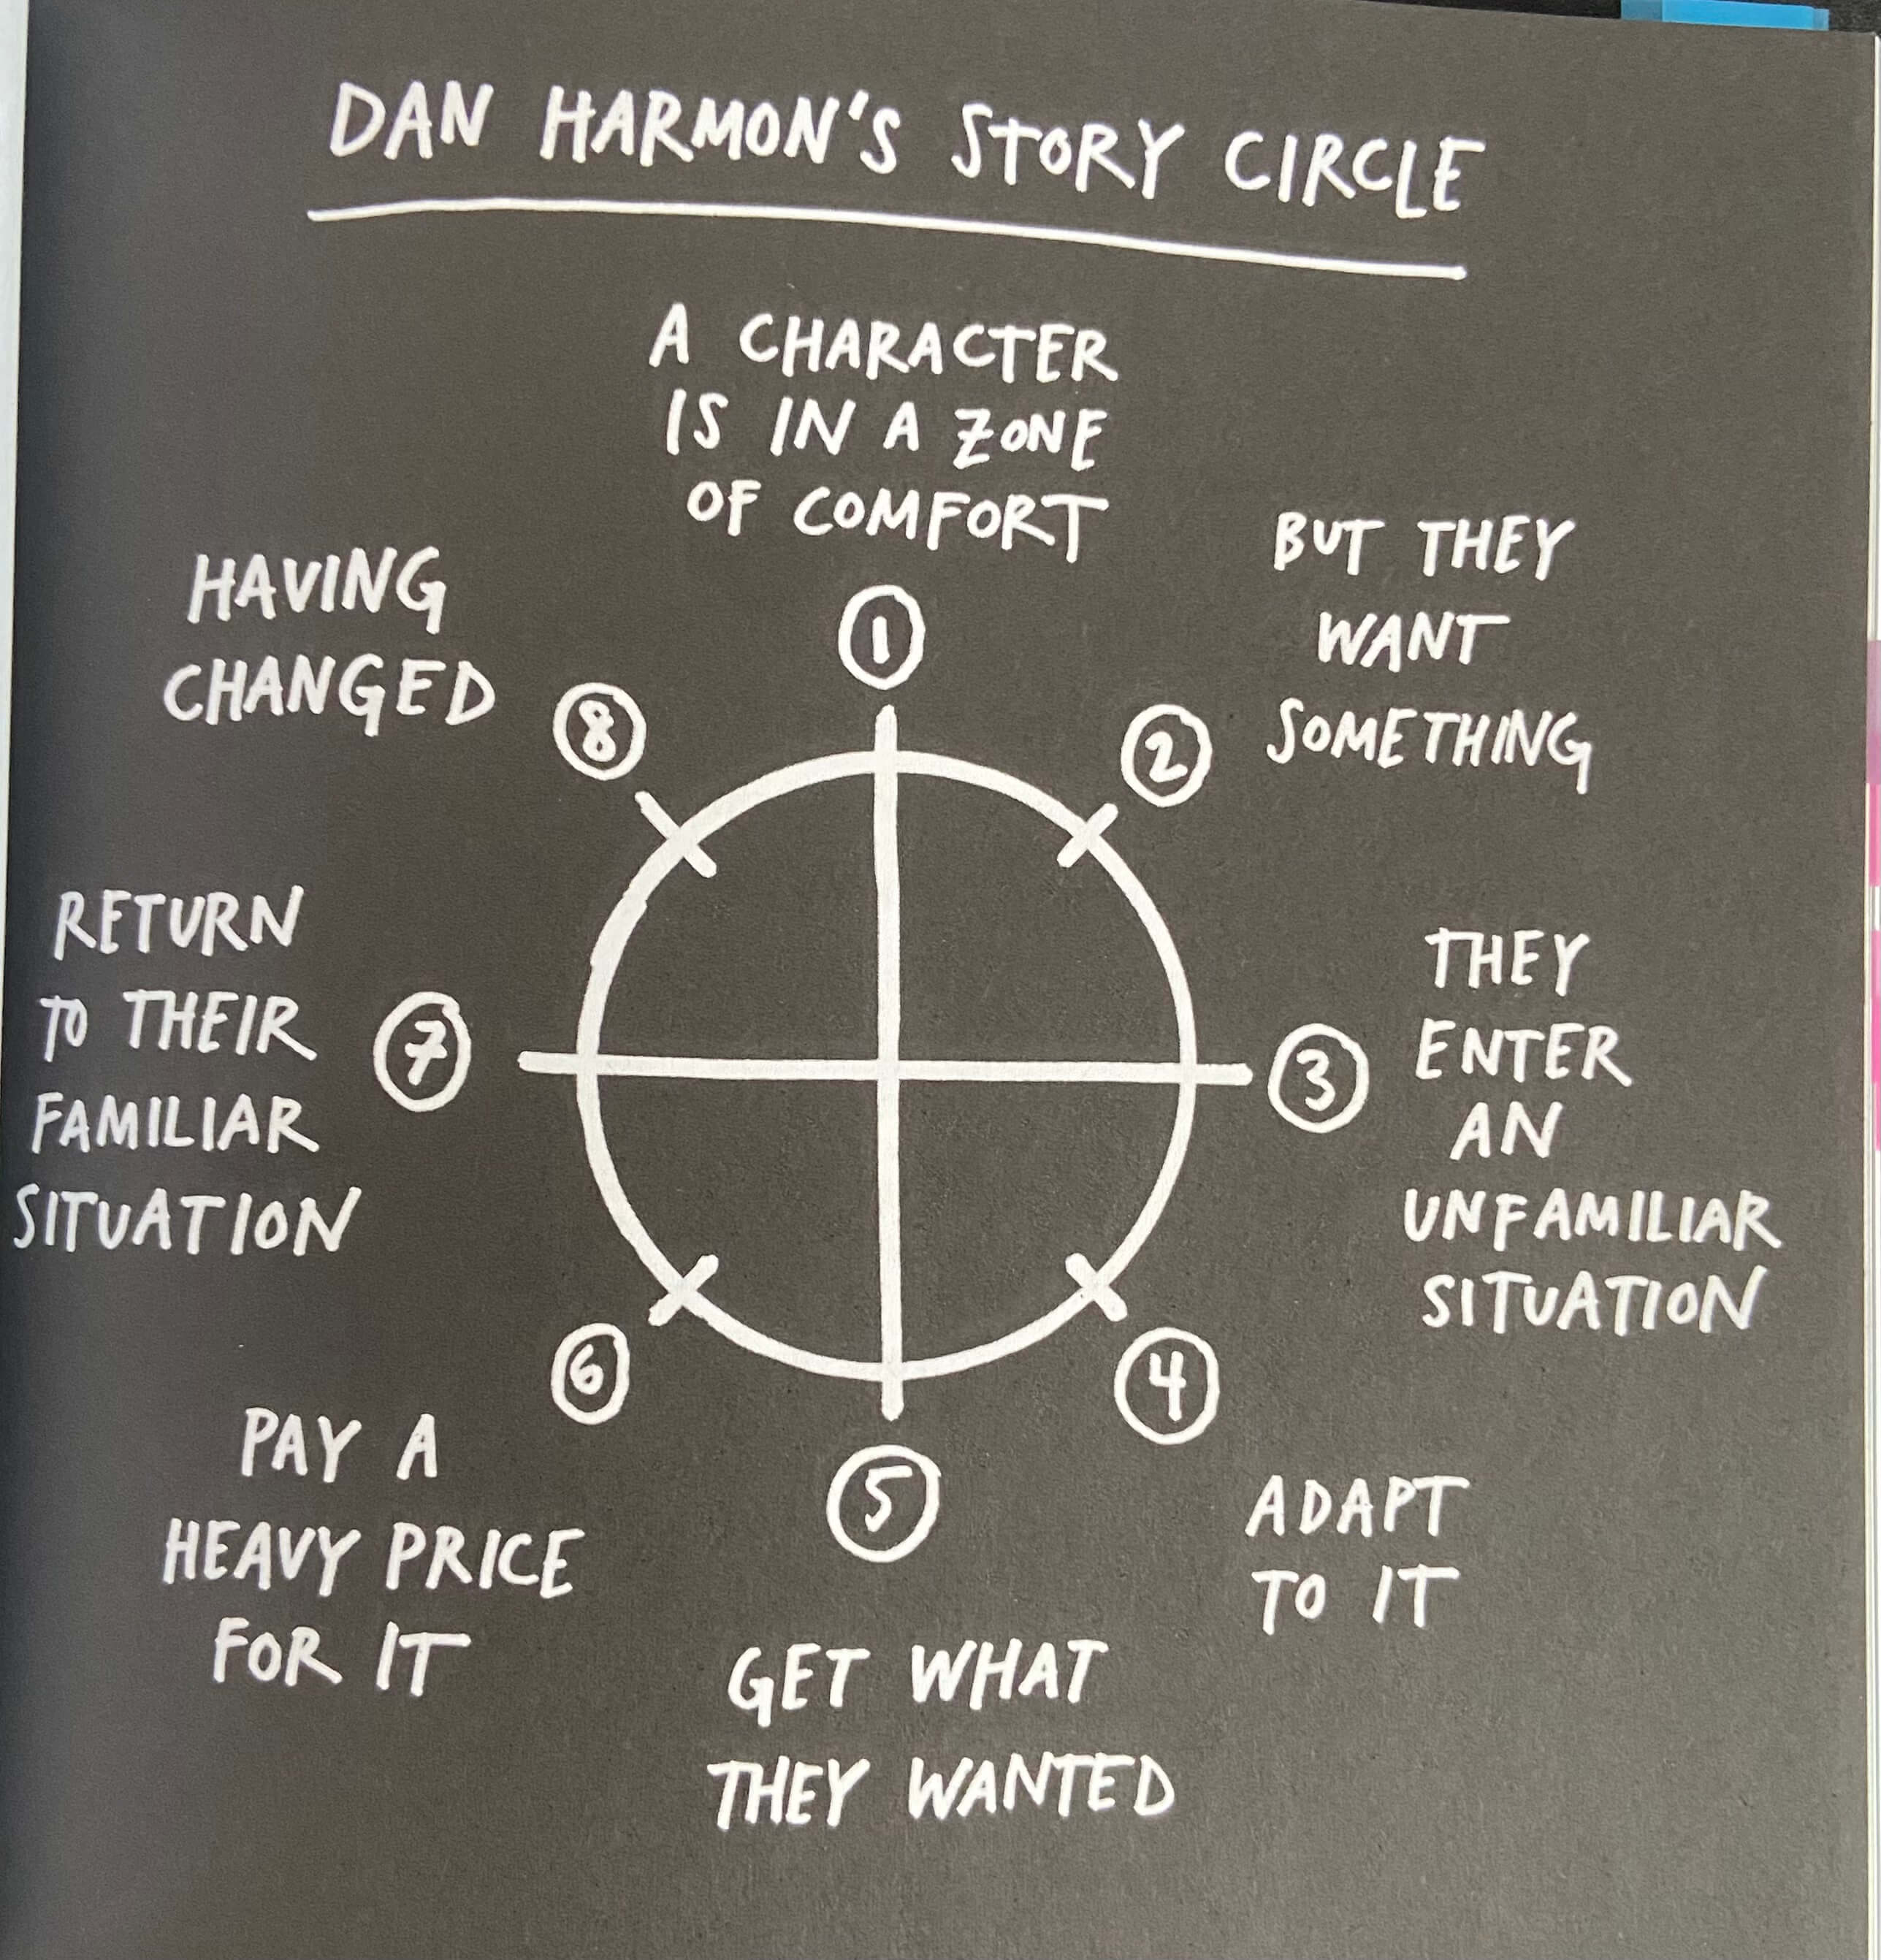 DAN HARMON'S STORY CIRCLE
A CHARACTER
IS IN A ZONE
OF COMFORT
1
BUT THEY
WANT
SOMETHING
2
THEY
ENTER
AN
UNFAMILIAR
SITUATION
3
ADAPT
TO IT
4
GET WHAT
THEY WANTED
5
PAY A
HEAVY PRICE
FOR IT
6
RETURN
TO THEIR
FAMILIAR
SITUATION
7
HAVING
CHANGED
8